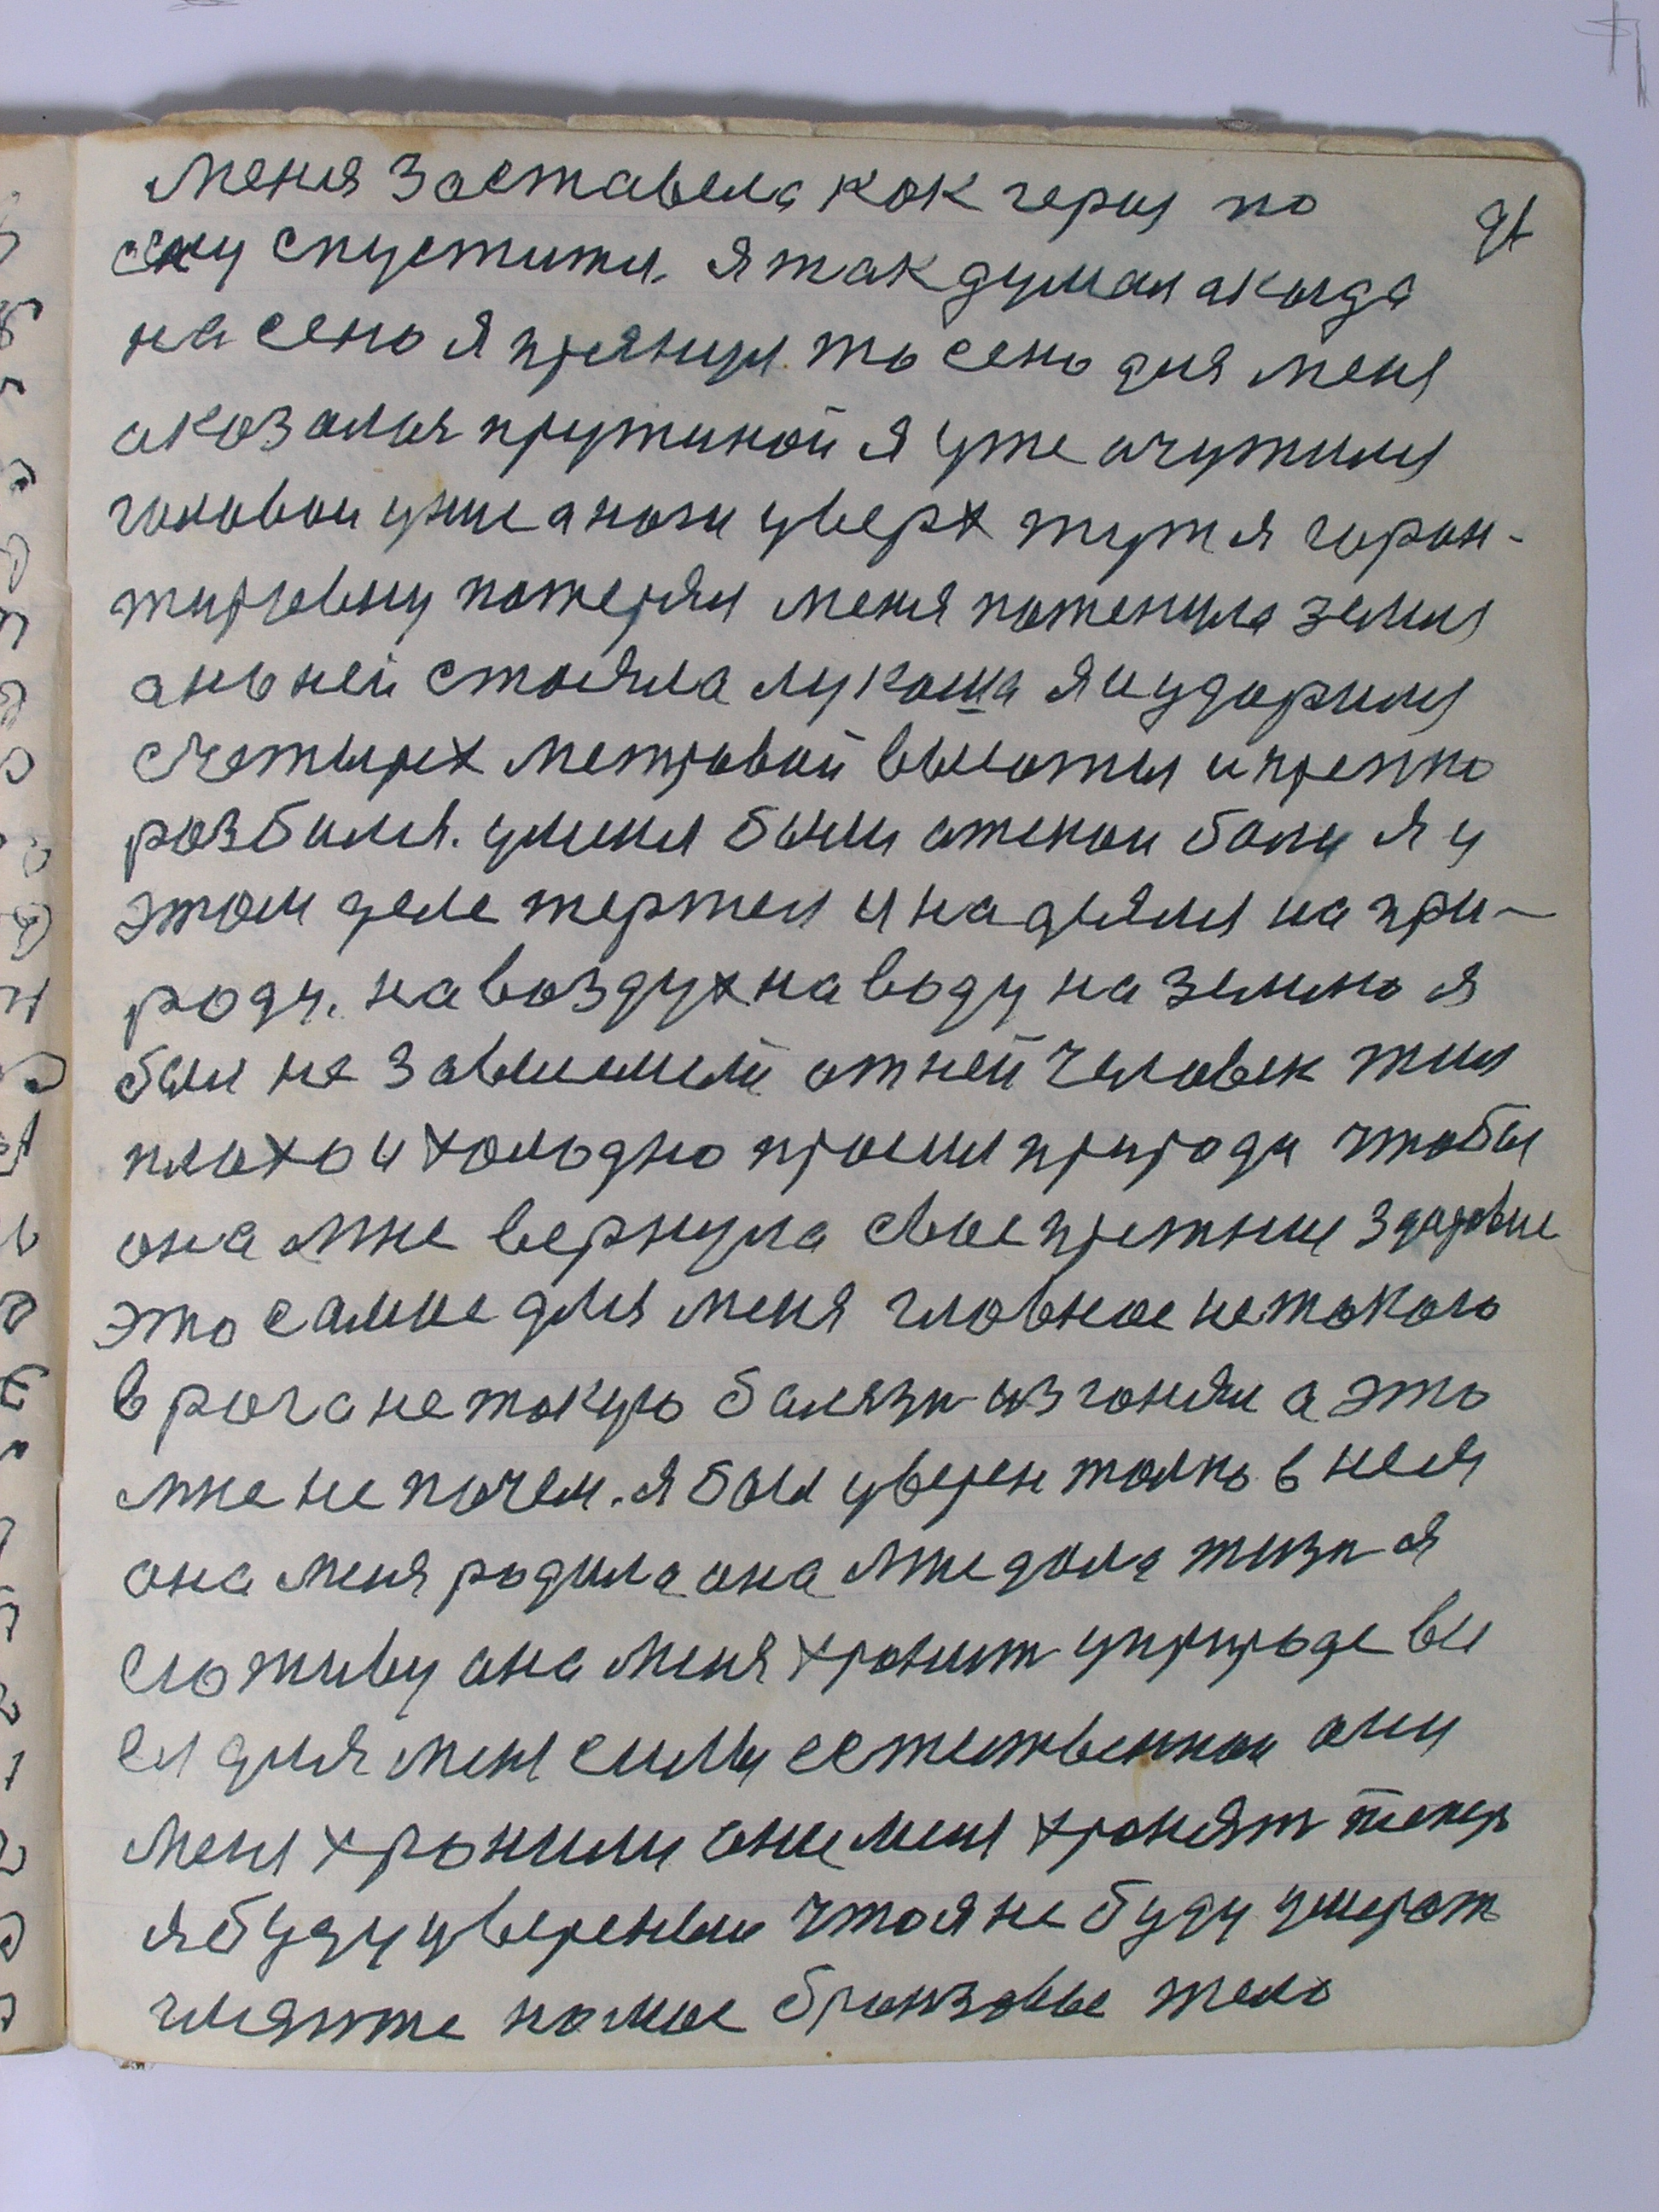 меня заставела как герия по
сену спустится. я так думал а когда
на сено я прянул то сено для меня
аказалася пружиной я уже очутился
головои униз а ноги уверх тут я горан-
тировку потерял меня потенула земля
а на ней стояла лукошка я и ударился
с четырех метровай высоты и крепко
розбился. у меня были отекои боли я у
этом деле тертел и надеялся на при-
роду. на воздух на воду на землю я
был не зависимый от ней человек жил
плохо и холодно просил природу чтобы
она мне вернула свое прежние здоровие
это самие для меня гловное не токого
врага не токую балезн изгонял а это
мне не почем. я был уверен толко в нея
она меня родила она мне дала жизн я
ею живу она меня хронит у природе все
ест для меня силы естественнои они
меня хронили они меня хронят тепер
я буду уверенный что я не буду умерат
гляните на мое бронзовые тело
91